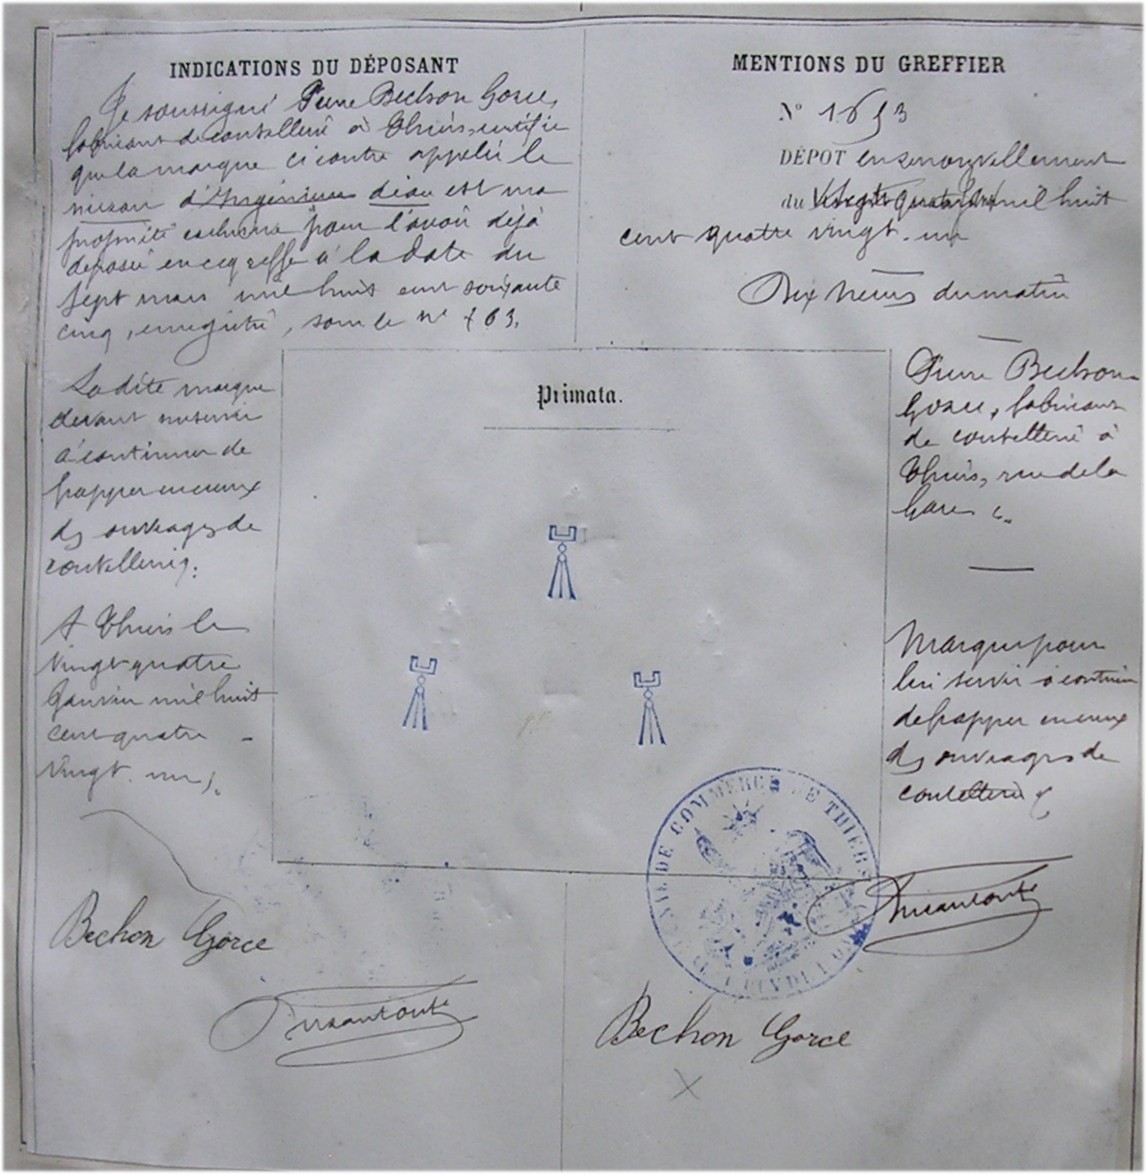 INDICATIONS DU DÉPOSANT
Je soussigné Pierre Bechon Gorce,
fabricant de coutellerie à Thiers, certifie
que la marque ci contre appelée le
niveau d'Ingénieur d'eau est ma
propriété exclusive pour l'avoir déjà
déposée en ce greffe à la date du
sept mars mil huit cent soixante
cinq, enregistré, sous le n°
La dite marque
devant me servir
à continuer de
frapper en creux
des ouvrages de
coutellerie.
A Thiers le
vingt quatre
Janvier mil huit
cent quatre
vingt un
Bechon Gorce
MENTIONS DU GREFFIER
N° 1653
DÉPOT en renouvellement
du Vingt quatre mil huit
cent quatre vingt un
Dix heures du matin
Primata.
Pierre Bechon
Gorce, fabricant
de coutellerie à
Thiers, rue de la
Gare
Marque pour
lui servir à continuer
de frapper en creux
des ouvrages de
coutellerie
DE COMMERCE DE THIERS
Bechon Gorce